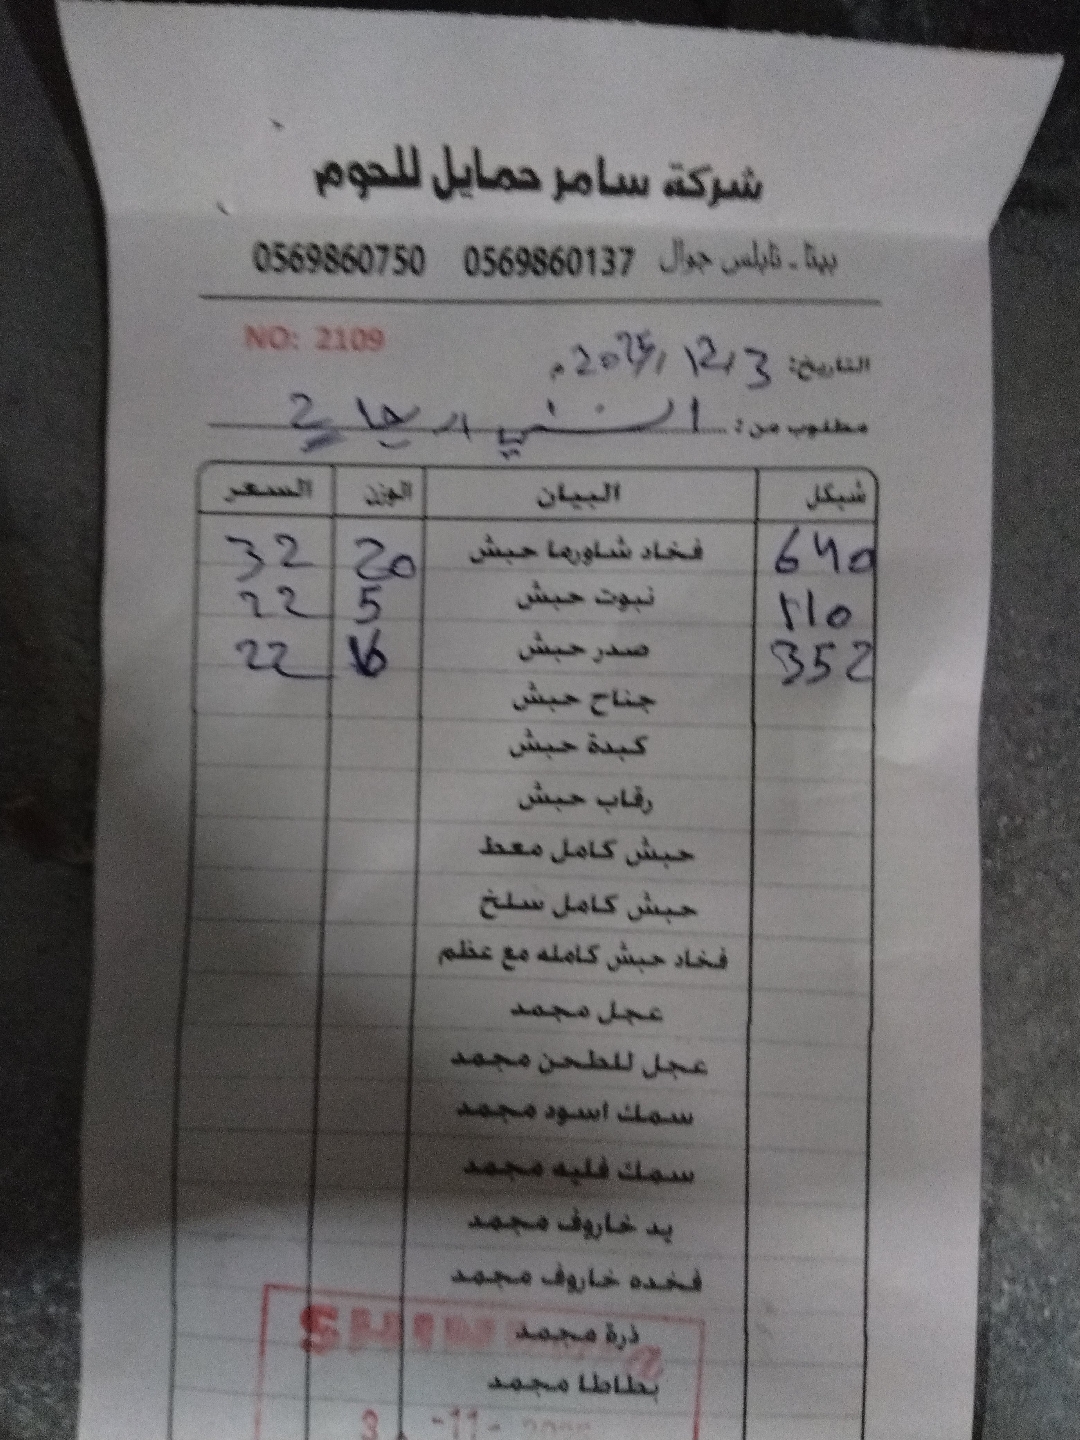 شركة سامر حمايل للحوم
بيتا - نابلس جوال 0569860137 0569860750
NO: 2109
التاريخ: 3 / 12 / 2025 م
مطلوب من:
شيكل البيان الوزن السعر
640 فخاد شاورما حبش 20 32
110 نبوت حبش 5 22
352 صدر حبش 16 22
جناح حبش
كبدة حبش
رقاب حبش
حبش كامل معط
حبش كامل سلخ
فخاد حبش كامله مع عظم
عجل مجمد
عجل للطحن مجمد
سمك اسود مجمد
سمك فليه مجمد
يد خاروف مجمد
فخده خاروف مجمد
ذرة مجمد
بطاطا مجمد
3 -11-